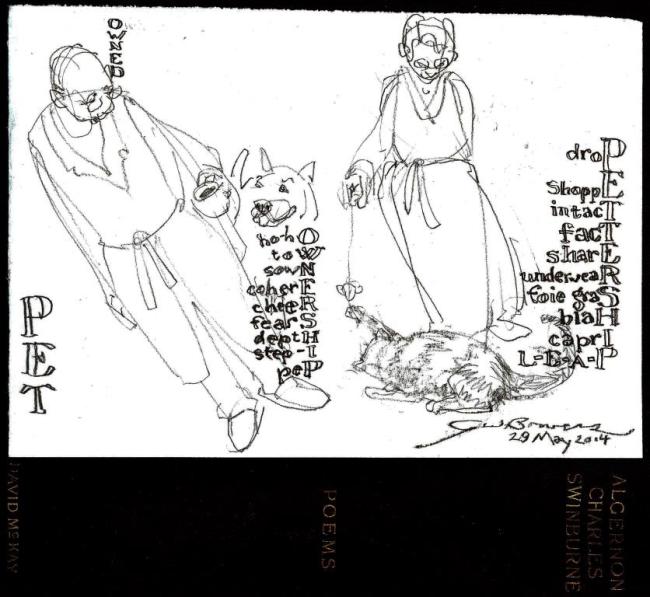 OWNED
PET
hohO
toW
sowN
coherE
cheeR
fearS
deptH
step-I
peP
droP
shoppE
intacT
facT
sharE
underweaR
foie graS
blaH
caprI
L-E-A-P
29 May 2014
ALGERNON
CHARLES
SWINBURNE
POEMS
DAVID McKAY